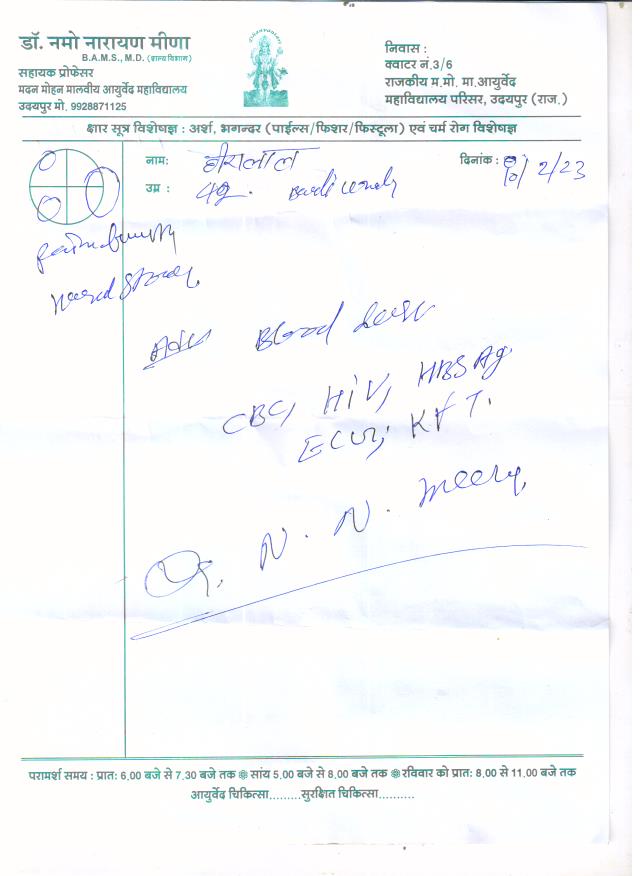 डॉ. नमो नारायण मीणा
B.A.M.S., M.D. (शल्य विज्ञान)
सहायक प्रोफेसर
मदन मोहन मालवीय आयुर्वेद महाविद्यालय
उदयपुर मो. 9928871125
निवास :
क्वाटर नं.3/6
राजकीय म.मो. मा.आयुर्वेद
महाविद्यालय परिसर, उदयपुर (राज.)
क्षार सूत्र विशेषज्ञ : अर्श, भगन्दर (पाईल्स/फिशर/फिस्टूला) एवं चर्म रोग विशेषज्ञ
नाम:
दिनांक : 2/23
उम्र :
Blood
CBC, HIV, HBSAg
KFT.
Dr. N. N. Meena
परामर्श समय : प्रात: 6.00 बजे से 7.30 बजे तक ❁ सांय 5.00 बजे से 8.00 बजे तक ❁ रविवार को प्रात: 8.00 से 11.00 बजे तक
आयुर्वेद चिकित्सा.........सुरक्षित चिकित्सा..........